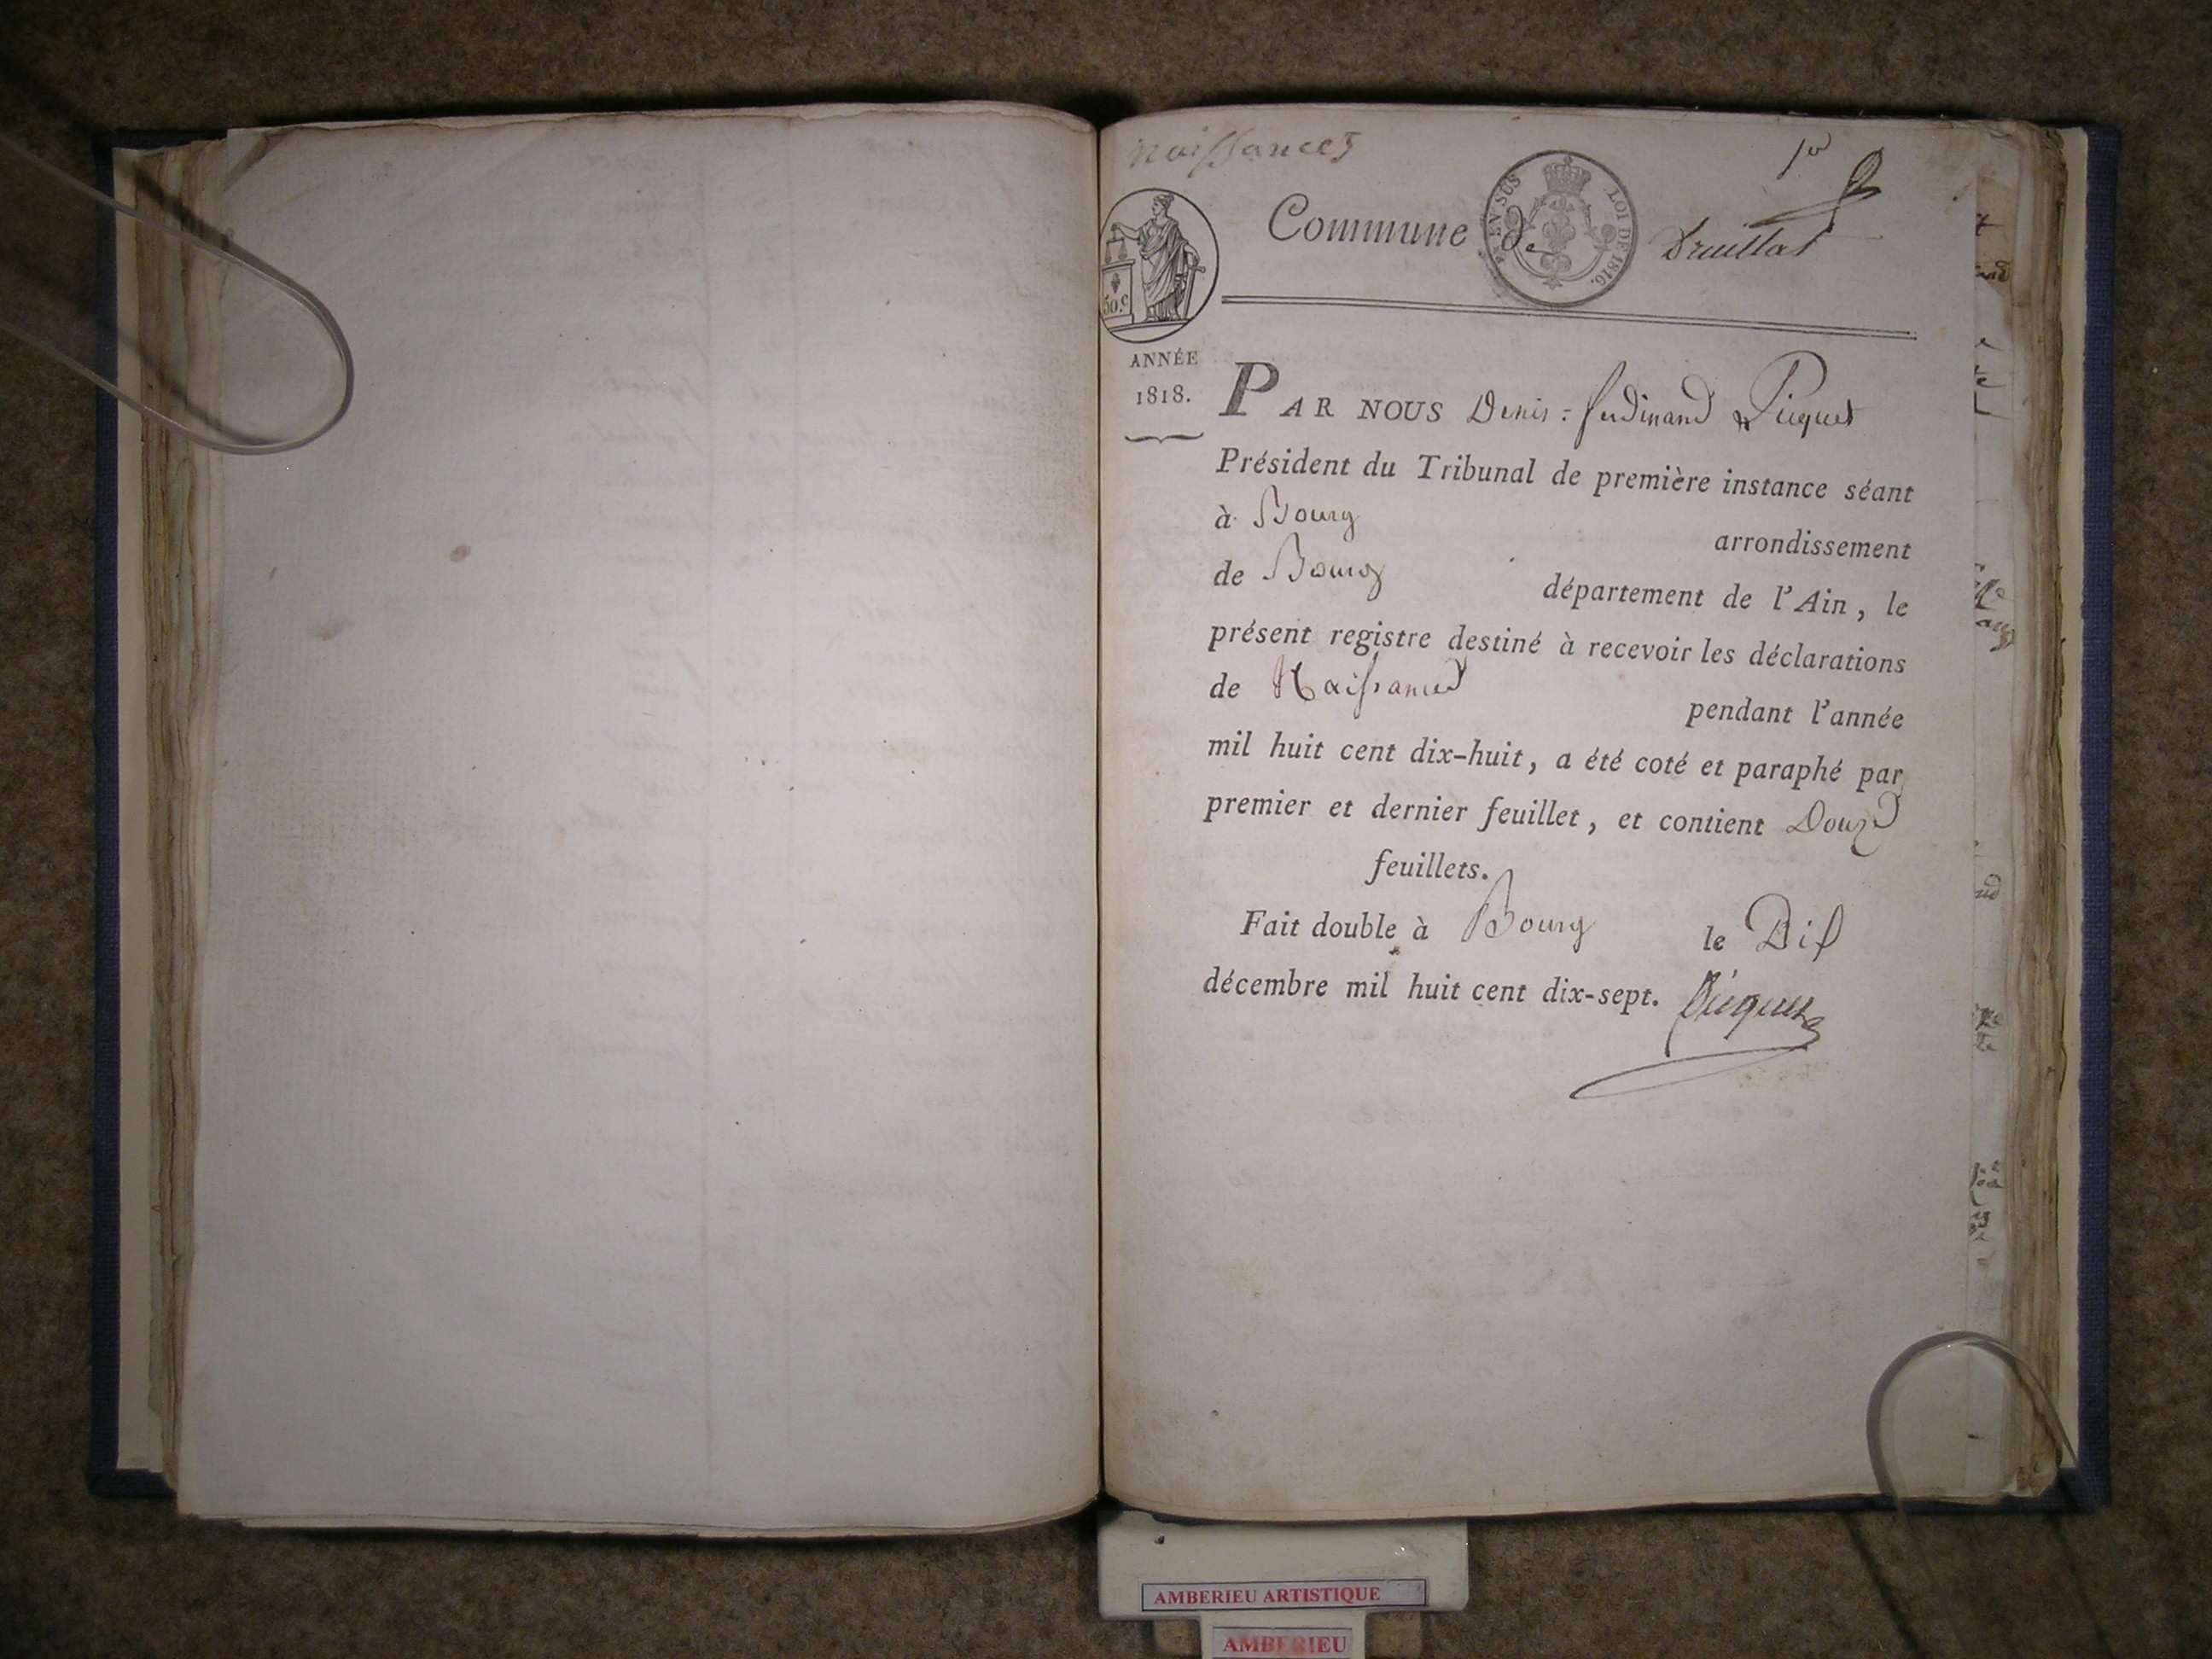 naissances
1er
Commune de Druillat
EN SUS
LOI DE 1816.
50.c
ANNÉE
1818.
PAR NOUS Denis-ferdinand Picquet
Président du Tribunal de première instance séant
à Bourg arrondissement
de Bourg département de l'Ain, le
présent registre destiné à recevoir les déclarations
de Naissances pendant l'année
mil huit cent dix-huit, a été coté et paraphé par
premier et dernier feuillet, et contient Douze
feuillets.
Fait double à Bourg le Dix
décembre mil huit cent dix-sept. Picquet
AMBERIEU ARTISTIQUE
AMBERIEU